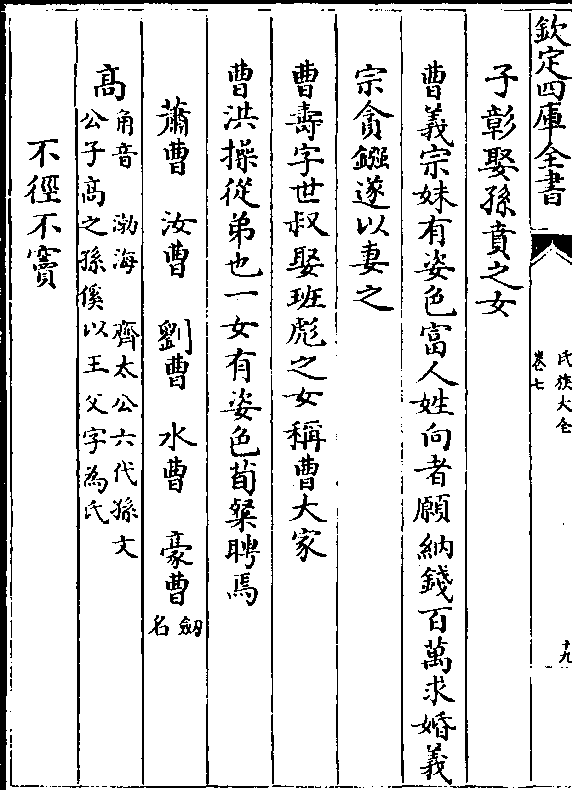 欽定四庫全書
氏族大全
卷七
十九
子彰娶孫賁之女
曹義宗妹有姿色富人姓向者願納錢百萬求婚義
宗貪鏹遂以妻之
曹壽字世叔娶班彪之女稱曹大家
曹洪操從弟也一女有姿色荀粲聘焉
蕭曹 汝曹 劉曹 水曹 豪曹劒名
高角音 渤海 齊太公六代孫文公子高之孫傒以王父字為氏
不徑不竇